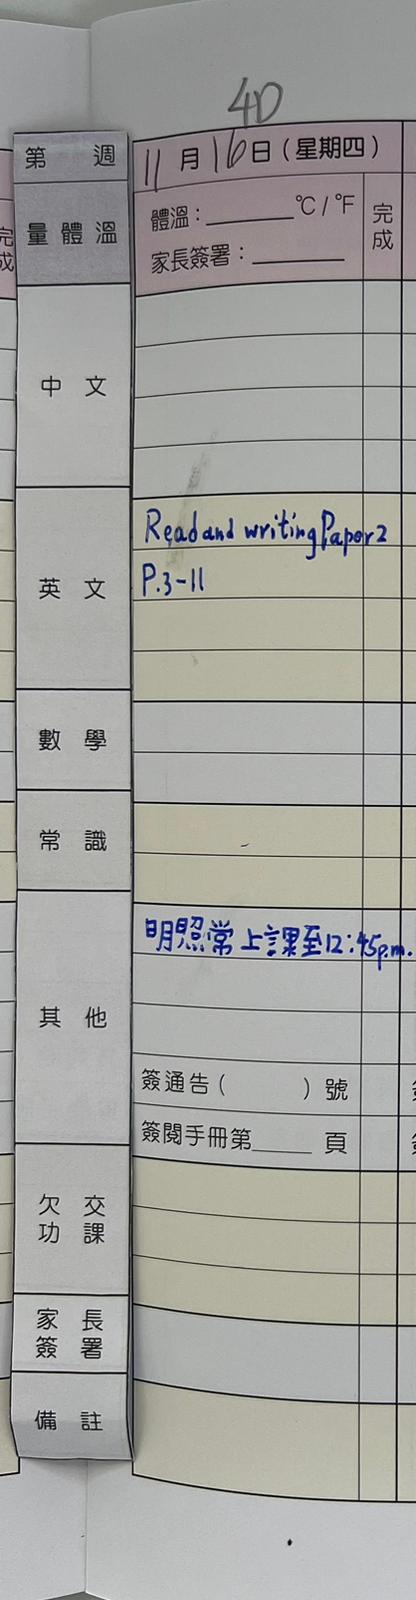 4D
第 週
11月16日(星期四)
量體溫
體溫：______°C/°F
完成
家長簽署：______
完成
中文
英文
Read and writing Paper 2
P.3-11
數學
常識
其他
明照常上課至12:45p.m.
簽通告( )號
簽閱手冊第______頁
欠交
功課
家長
簽署
備註